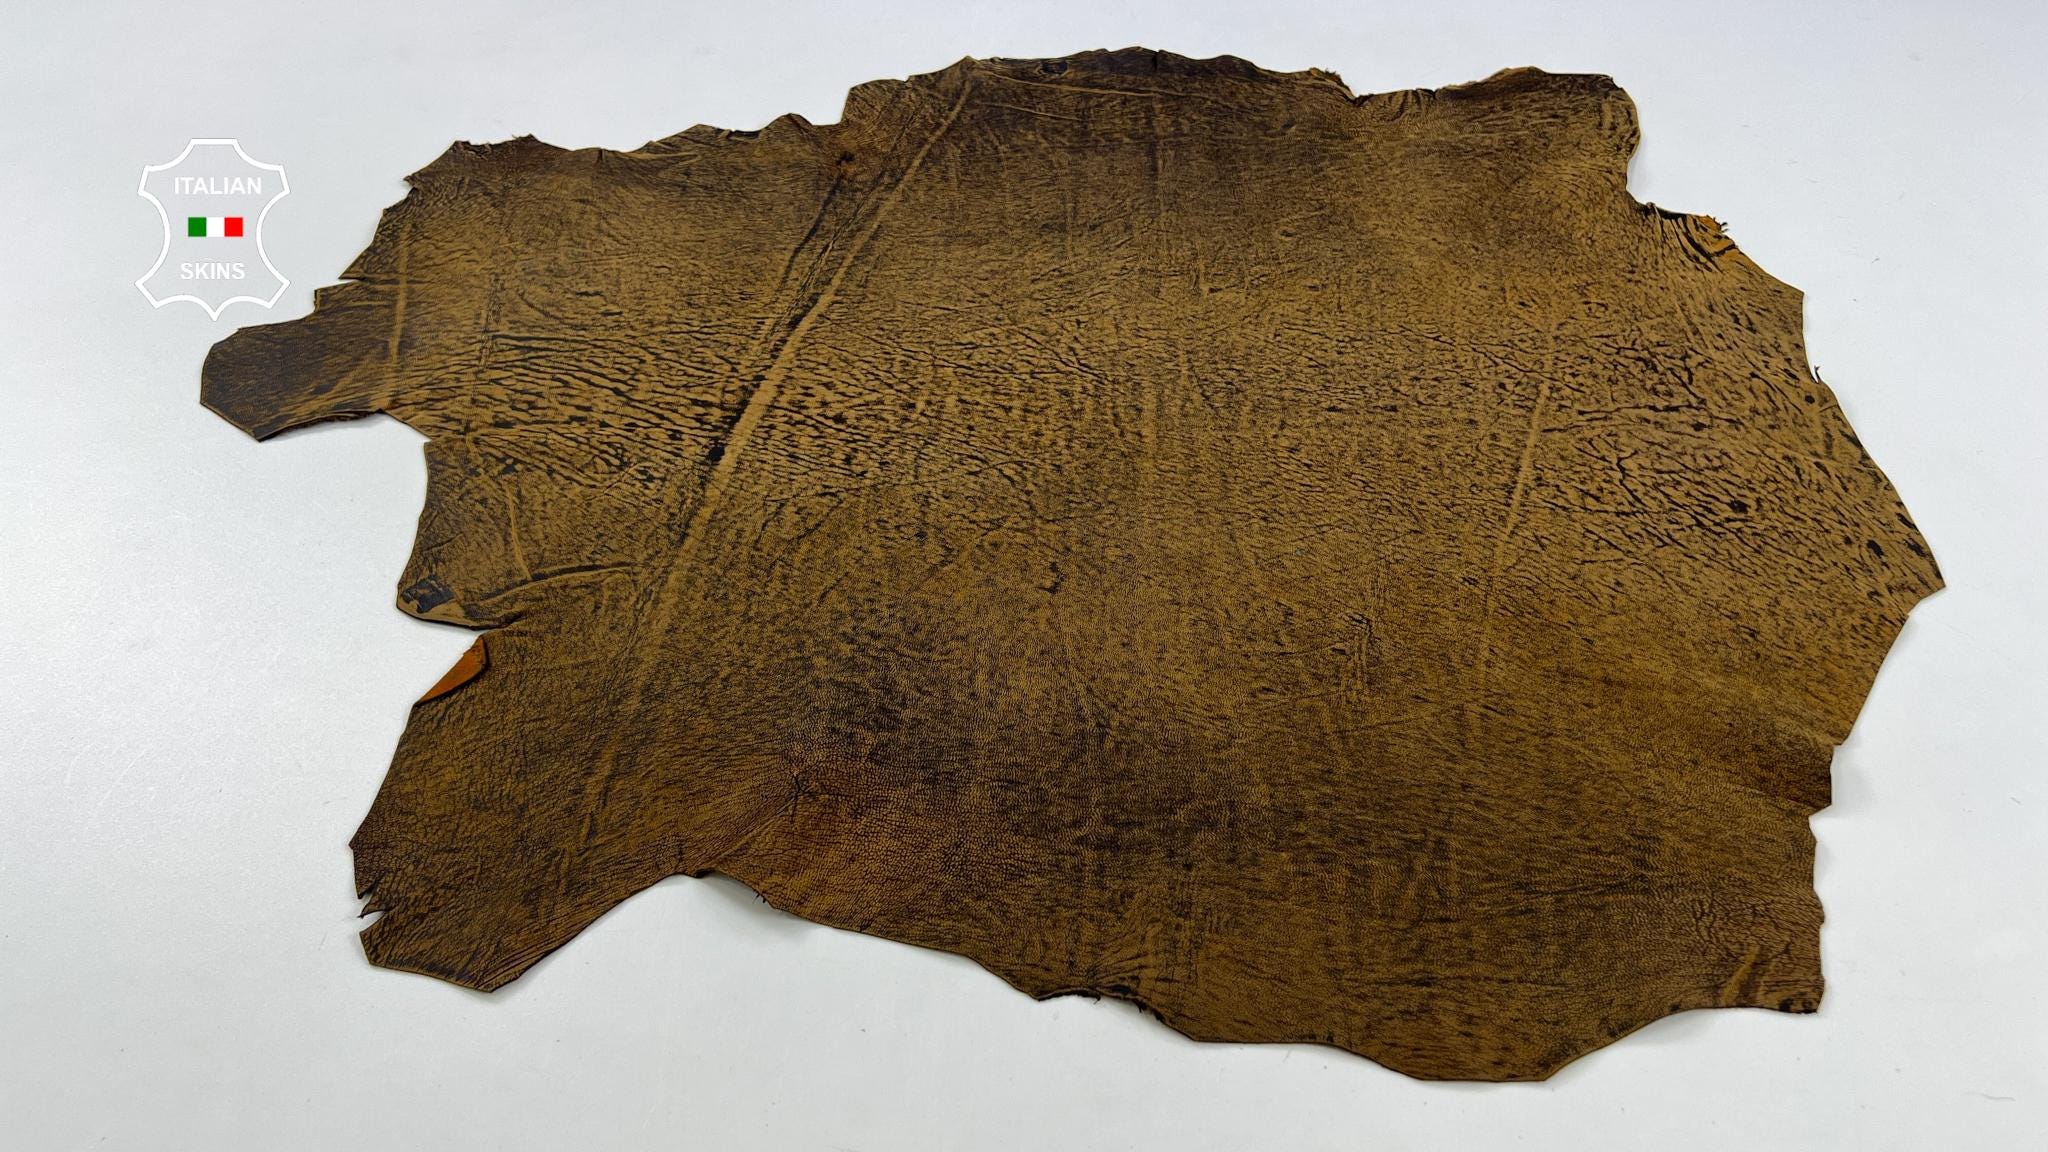 ITALIAN
SKINS